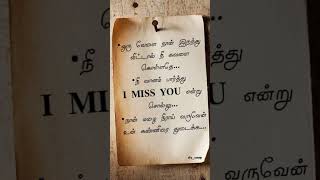 • ஒரு வேளை நான் இறந்து
விட்டால் நீ கவலை
கொள்ளாதே...
• நீ வானம் பார்த்து
I MISS YOU என்று
சொல்லு...
• நான் மழை நீராய் வருவேன்
உன் கண்ணீரை துடைக்க...
என்று
வருவேன்